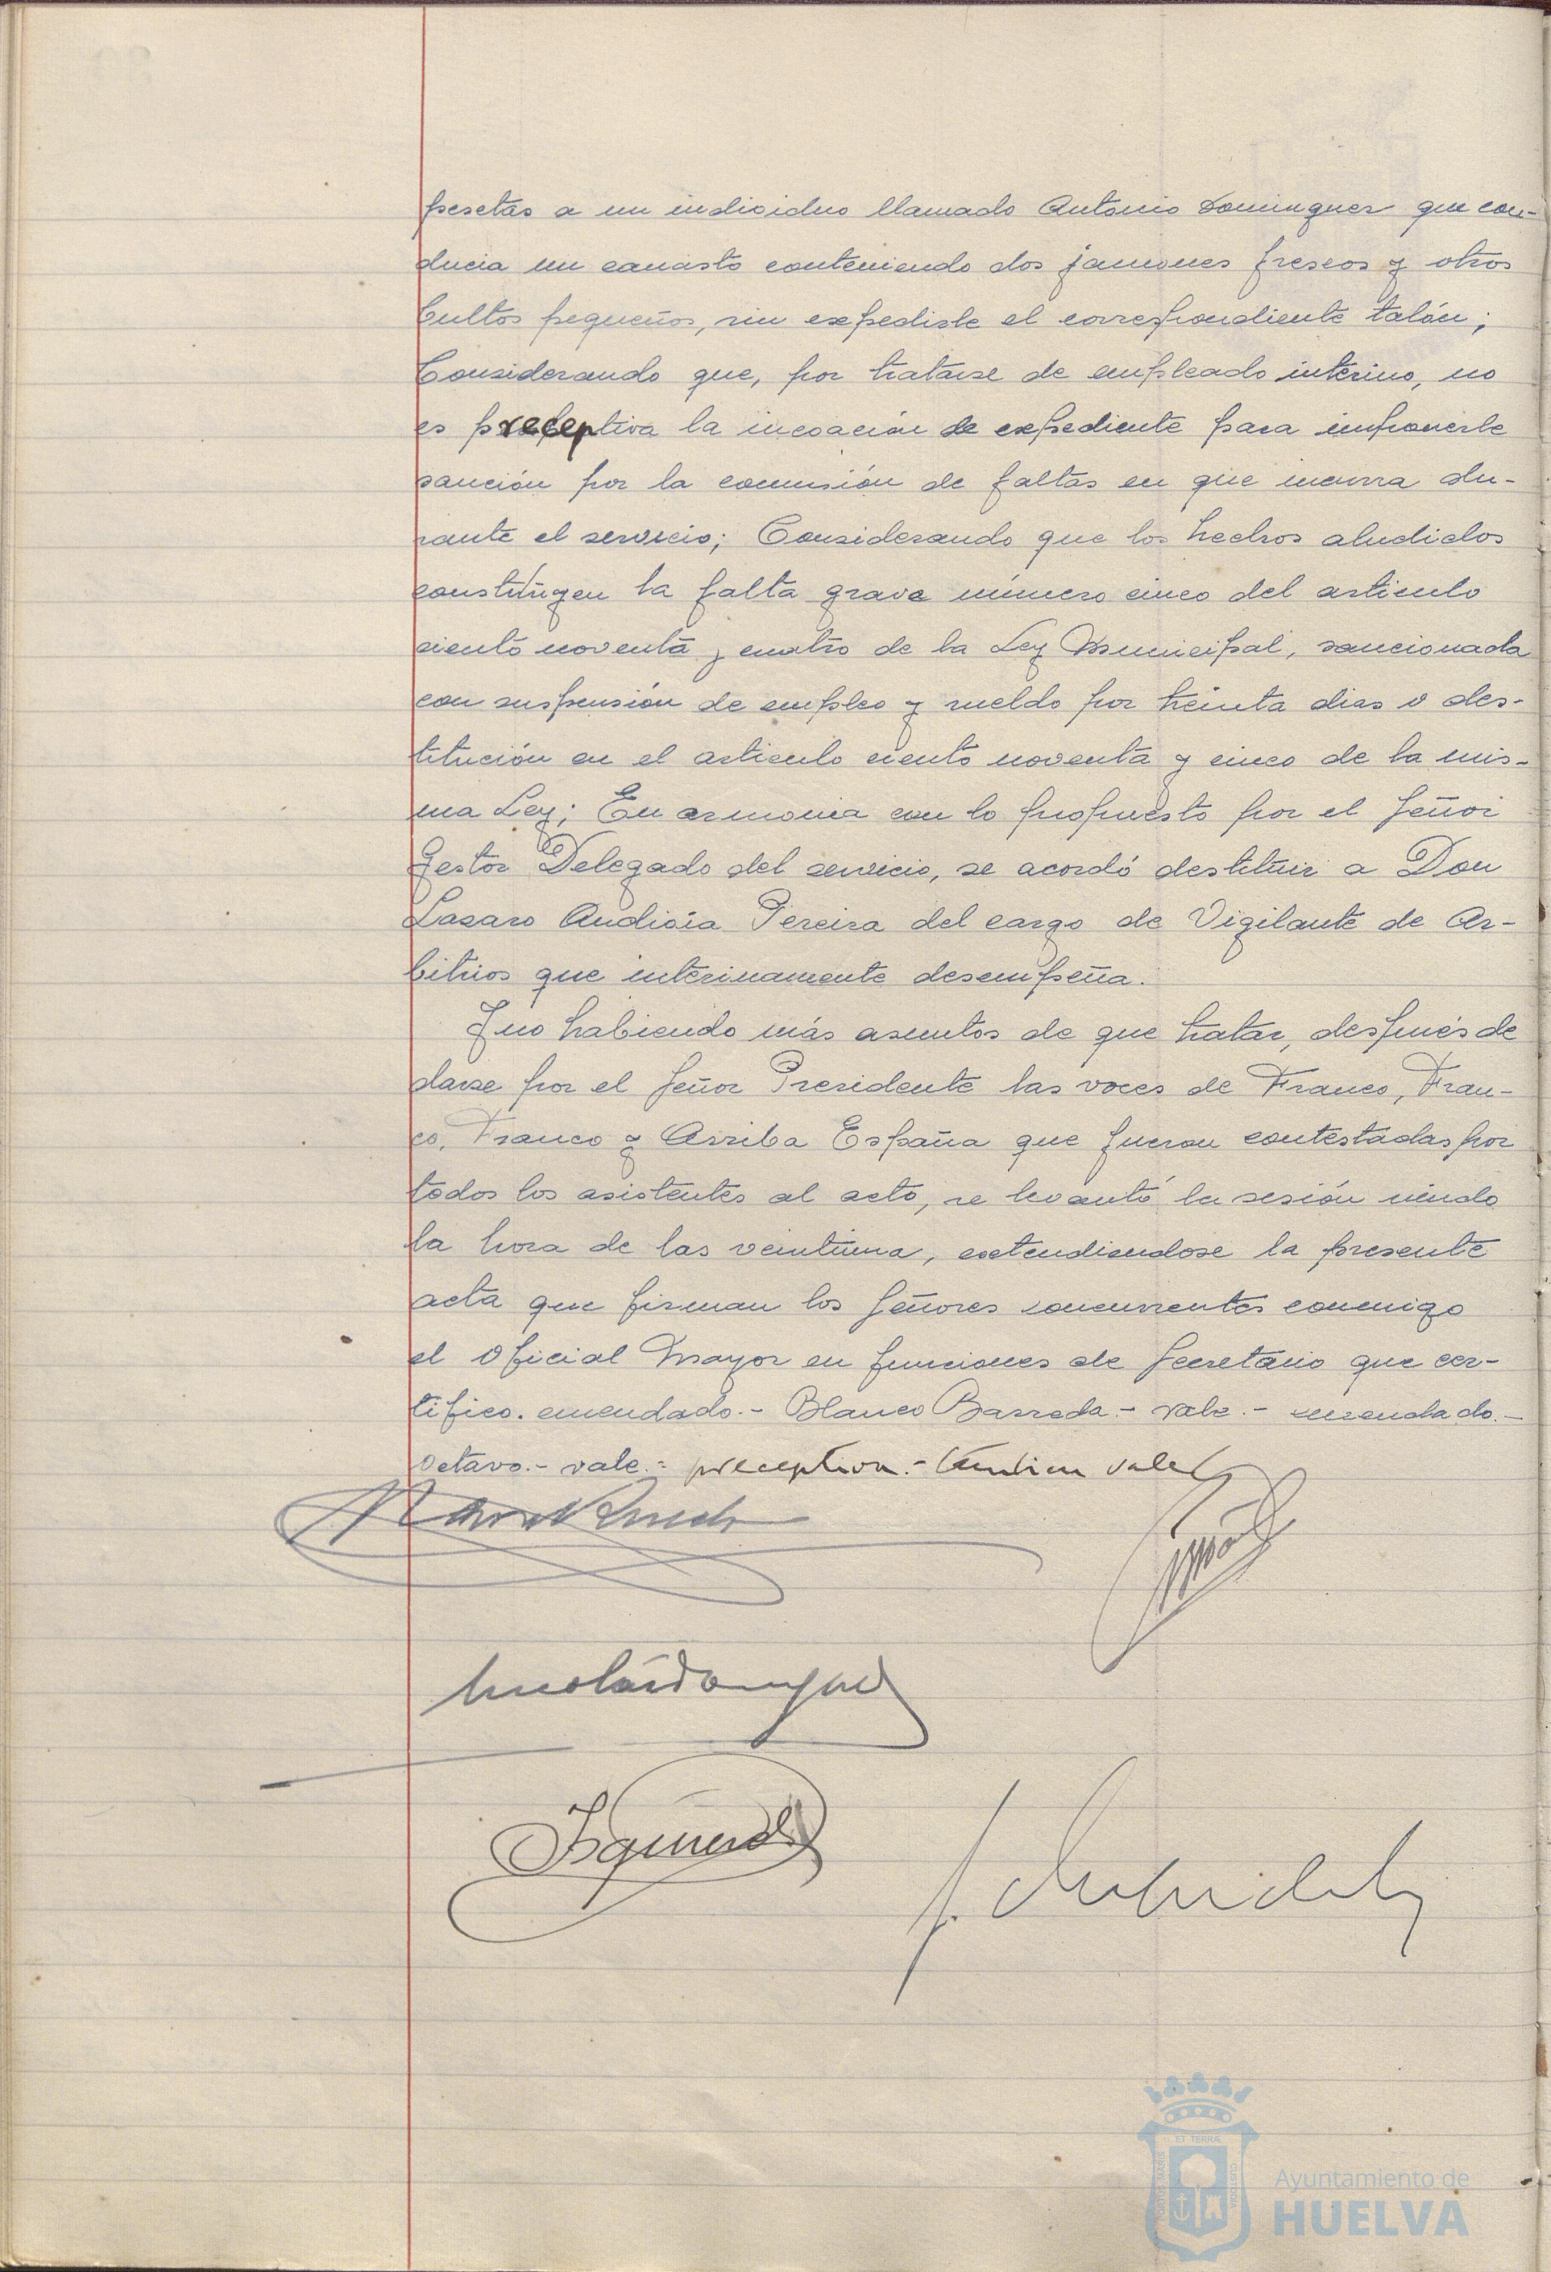 pesetas a un individuo llamado Antonio Dominguez que con-
ducia un canasto conteniendo dos jamones frescos y otros
bultos pequeños, sin expedirle el correspondiente talón;
Considerando que, por tratarse de empleado interino, no
es preceptiva la incoación de expediente para imponerle
sanción por la comisión de faltas en que incurra du-
rante el servicio; Considerando que los hechos aludidos
constituyen la falta grave número cinco del articulo
ciento noventa y cuatro de la Ley Municipal, sancionada
con suspensión de empleo y sueldo por treinta dias o des-
titución en el articulo ciento noventa y cinco de la mis-
ma Ley; En armonia con lo propuesto por el Señor
Gestor Delegado del servicio, se acordó destituir a Don
Lazaro Andivia Pereira del cargo de Vigilante de Ar-
bitrios que interinamente desempeña.
Y no habiendo más asuntos de que tratar, después de
darse por el Señor Presidente las voces de Franco, Fran-
co, Franco y Arriba España que fueron contestadas por
todos los asistentes al acto, se levantó la sesión siendo
la hora de las veintiuna, extendiendose la presente
acta que firman los Señores concurrentes conmigo
el Oficial Mayor en funciones de Secretario que cer-
tifico. enmendado.- Blanco Barreda.- vale.- enmendado.-
octavo.- vale.- preceptiva.- tambien vale
Izquierdo
ET TERRÆ
Ayuntamiento de
HUELVA